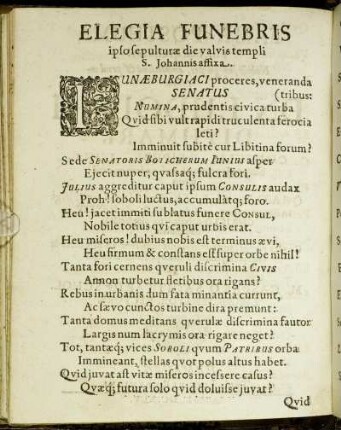 ELEGIA FUNEBRIS
ipso sepulturæ die valvis templi
S. Johannis affixa.
LUNÆBURGIACI proceres, veneranda
SENATUS (tribus:
NOMINA, prudentis civica turba
Qvid sibi vult rapidi truculenta ferocia
leti?
Imminuit subitè cur Libitina forum?
Sede SENATORIS BOISCHERUM PUNIUS asper
Ejecit nuper, qvassaq; fulcra fori.
JULIUS aggreditur caput ipsum CONSULIS audax
Proh! soboli luctus, accumulàtq; foro.
Heu! jacet immiti sublatus funere CONSUL,
Nobile totius qvi caput urbis erat.
Heu miseros! dubius nobis est terminus ævi,
Heu firmum & constans est super orbe nihil?
Tanta fori cernens qveruli discrimina CIVIS
Annon turbetur fletibus ora rigans?
Rebus in urbanis dum fata minantia currunt,
Ac sævo cunctos turbine dira premunt:
Tanta domus meditans qverulæ discrimina fautor
Largis num lacrymis ora rigare neget?
Tot, tantæq; vices SOBOLI qvum PATRIBUS orba
Immineant, stellas qvot polus altus habet.
Qvid juvat ast vitæ miseros incessere casus?
Qvæq; futura solo qvid doluisse juvat?
Qvid